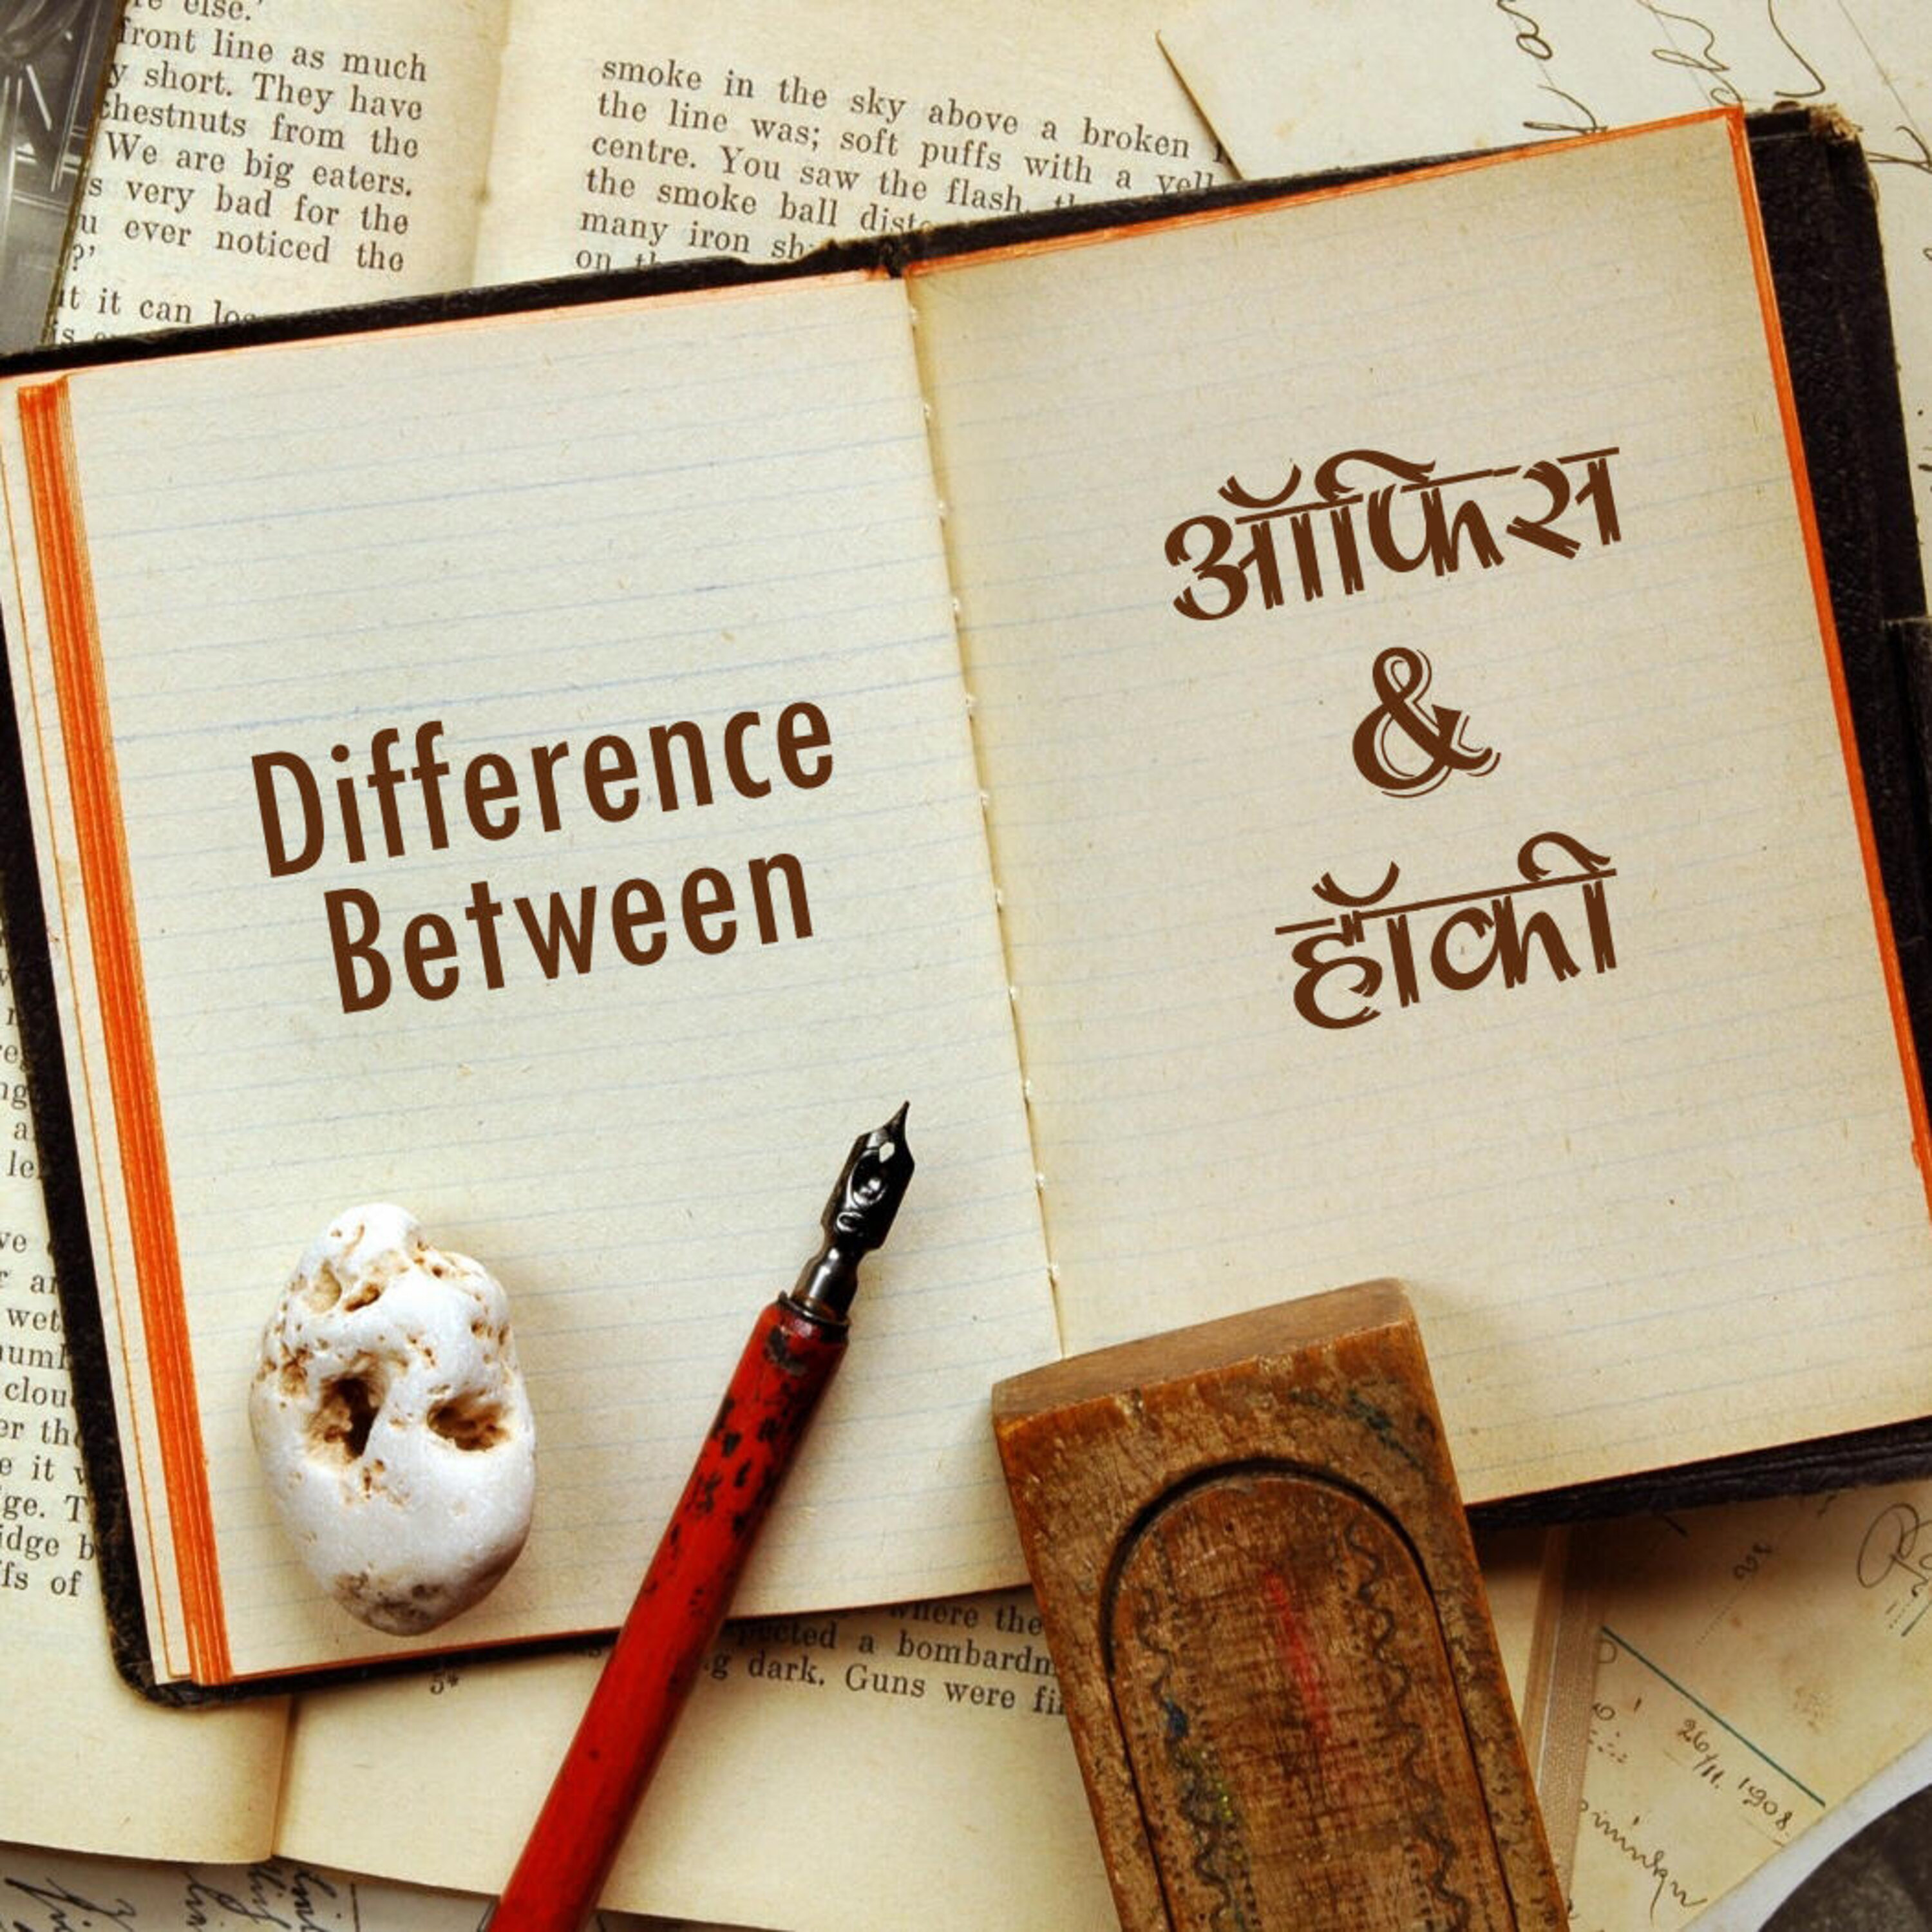 re else.'
front line as much
y short. They have
chestnuts from the
We are big eaters.
s very bad for the
u ever noticed the
?'
it can
smoke in the sky above a broken
the line was; soft puffs with a
centre. You saw the flash
the smoke ball
many iron
on
Difference
Between
ऑफिस
&
हॉकी
wet
er
it
ge. T
idge b
fs of
where the
a bombardm
g dark. Guns were
5*
26/11. 1908